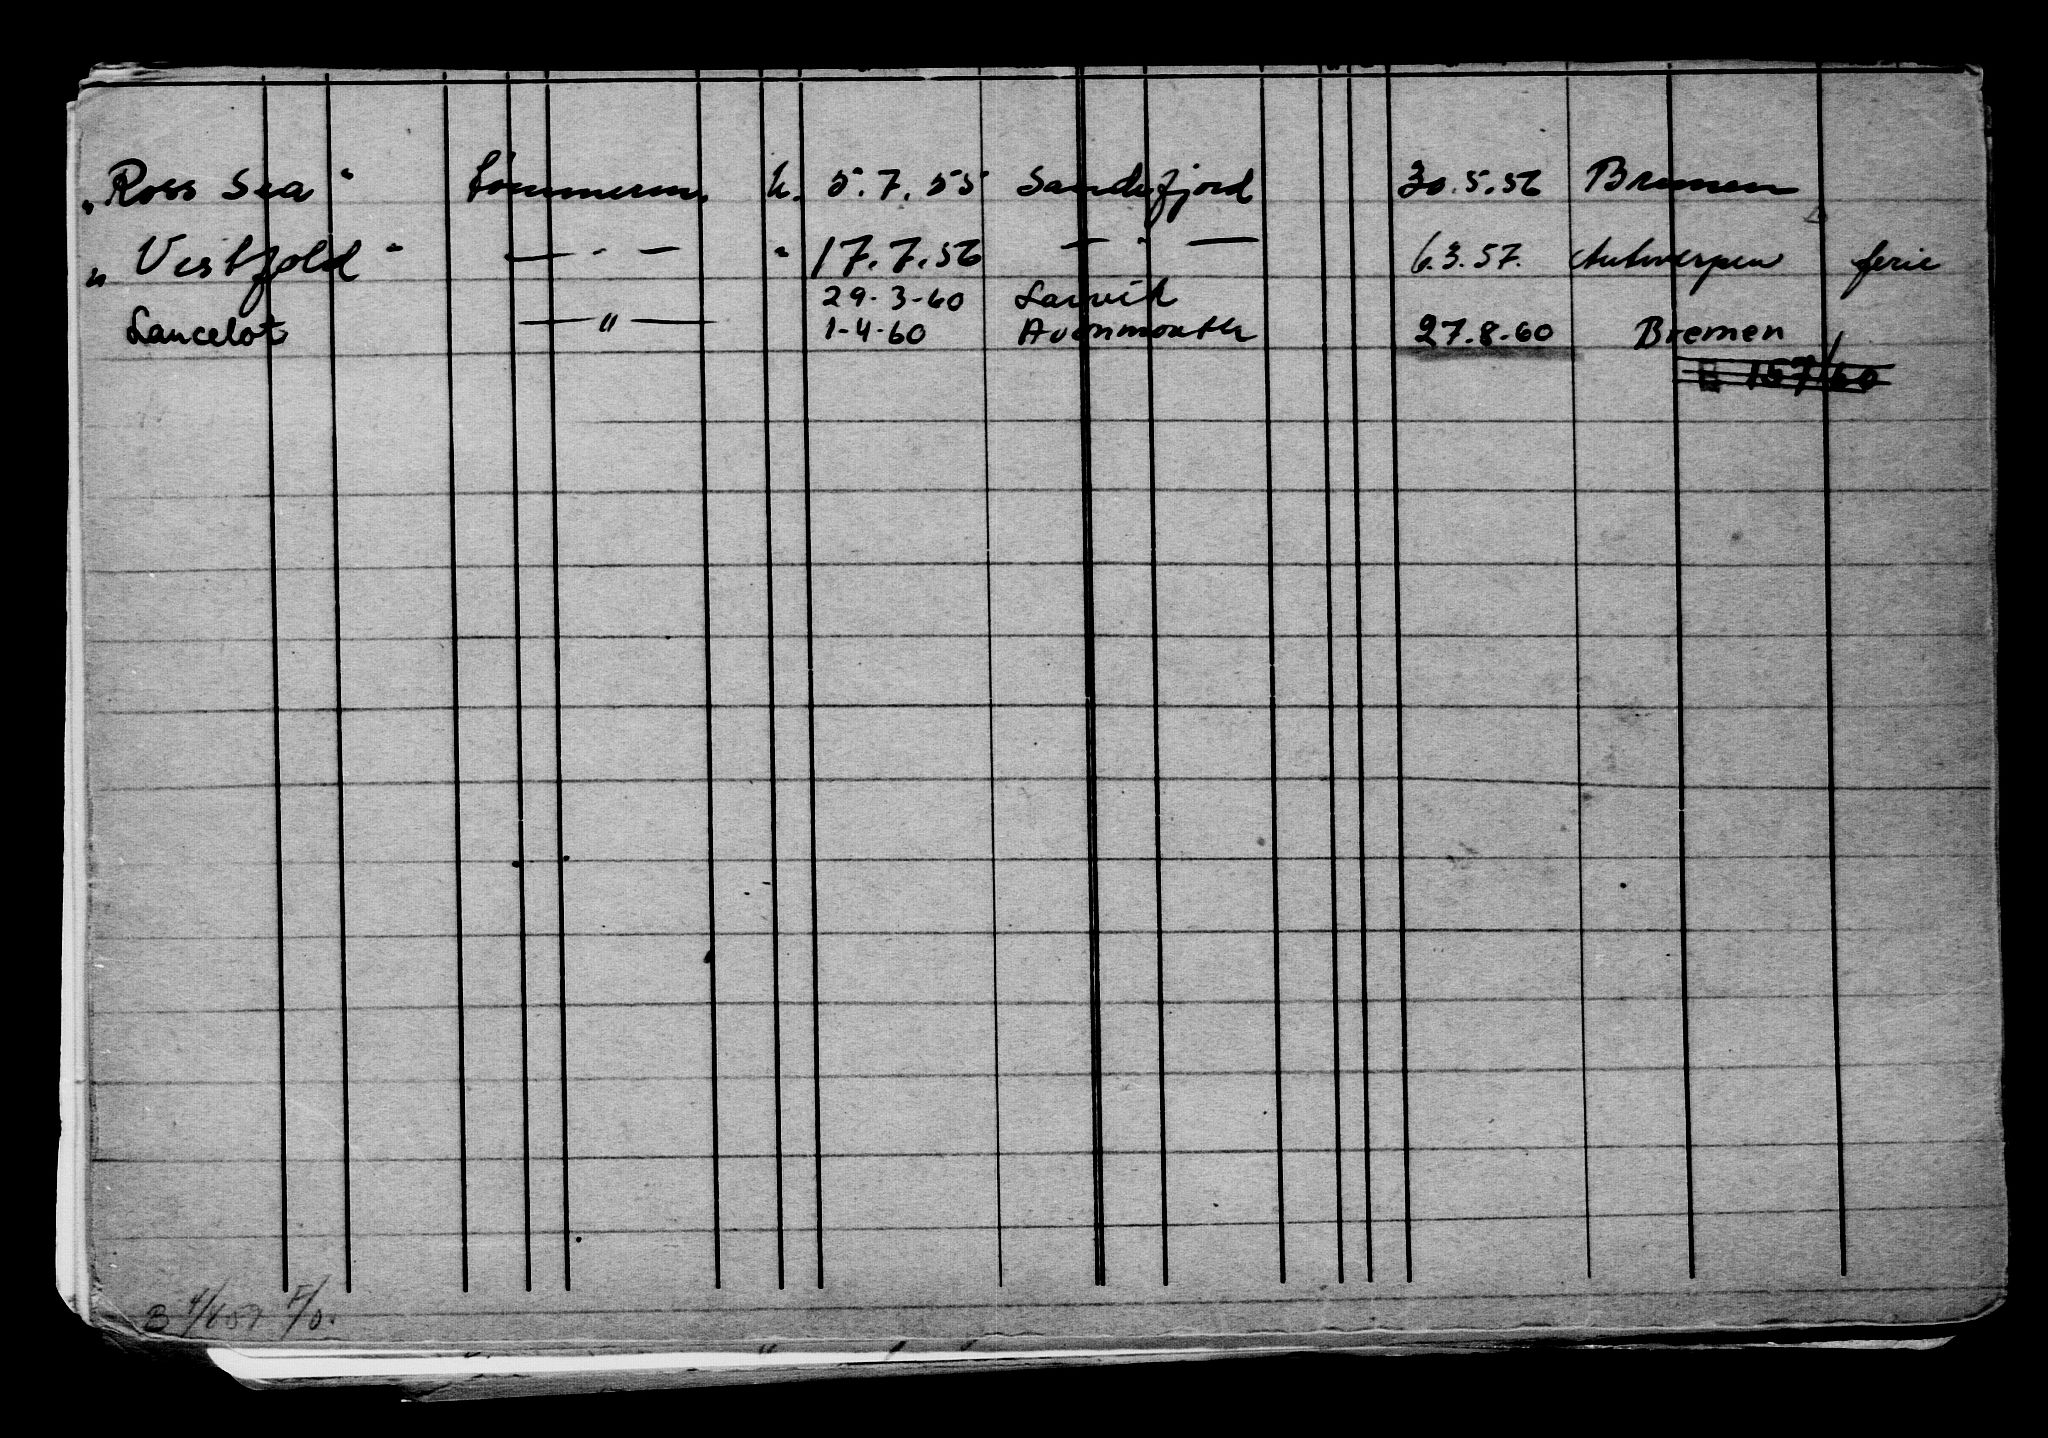 "Ross Sea" Tømmerm. h. 5.7.55 Sandefjord 30.5.56 Bremen
"Vestfold" — " — " 17.7.56 — " — 6.3.57. Antwerpen ferie
29-3-60 Larvik
Lancelot — " — 1-4-60 Avonmouth 27.8-60 Bremen
157/60
B 4/4 57 F/O.